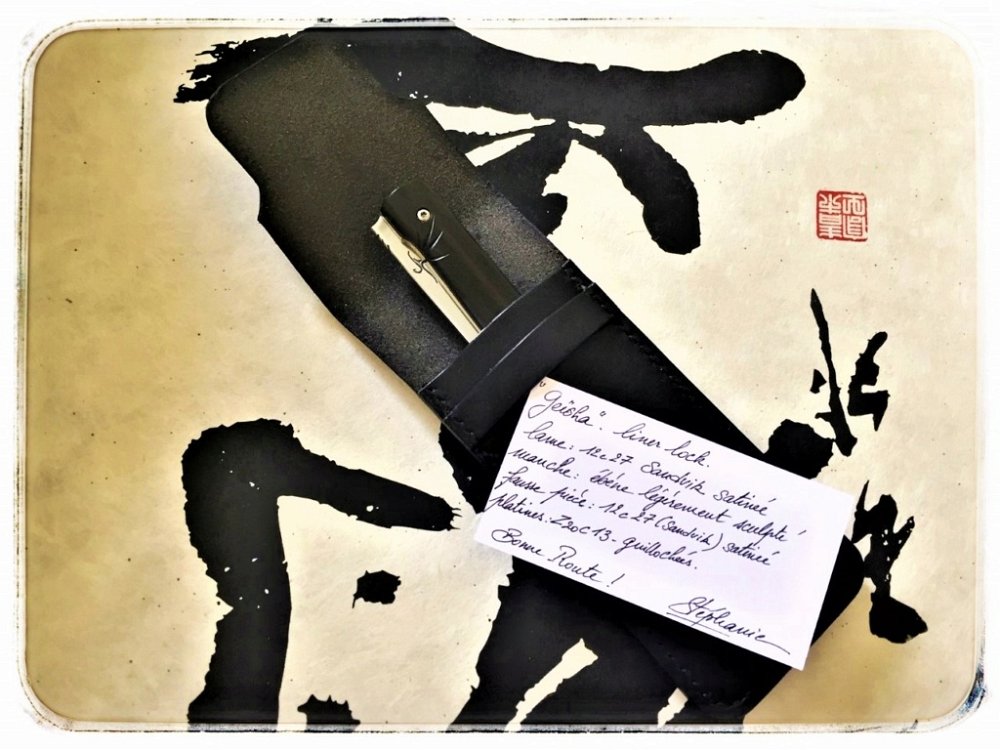 "Geïsha": liner lock.
lame: 12c27 Sandvik satinée
manche: ébène légèrement sculpté
fausse pièce: 12c27 (Sandvik) satinée
platines: Z20C13 - guillochées.
Bonne Route !
Stéphanie